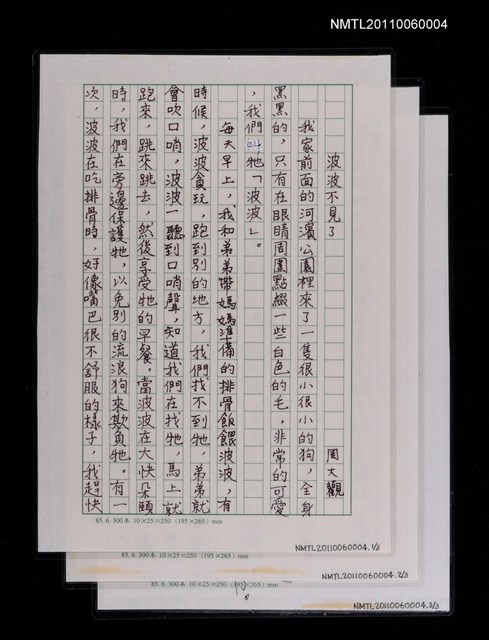 NMTL20110060004
波波不見了
周大觀
我家前面的河濱公園裡來了一隻很小很小的狗，全身
黑黑的，只有在眼睛周圍點綴一些白色的毛，非常的可愛
，我們叫牠「波波」。
每天早上，我和弟弟帶媽媽準備的排骨飯餵波波，有
時候，波波貪玩，跑到別的地方，我們找不到牠，弟弟就
會吹口哨，波波一聽到口哨聲，知道我們在找牠，馬上就
跑來，跳來跳去，然後享受牠的早餐，當波波在大快朵頤
時，我們在旁邊保護牠，以免別的流浪狗來欺負牠。有一
次，波波在吃排骨時，好像嘴巴很不舒服的樣子，我趕快
85.6.300本 10×25=250 (195×265) mm
NMTL20110060004.1/3
85.6.300本 10×25=250 (195×265) mm
NMTL20110060004.2/3
85.6.300本 10×25=250 (195×265) mm
NMTL20110060004.3/3